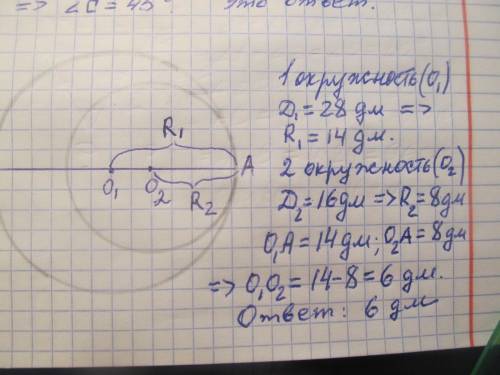 => ∠C = 45°. это ответ.
1 окружность (O₁)
D₁ = 28 дм =>
R₁ = 14 дм.
2 окружность (O₂)
D₂ = 16 дм => R₂ = 8 дм
O₁A = 14 дм; O₂A = 8 дм
=> O₁O₂ = 14 - 8 = 6 дм.
Ответ: 6 дм
R₁
A
O₁ O₂
R₂